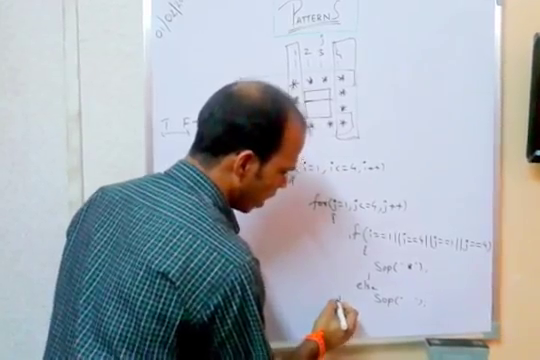 01/02/
PATTERNS
j
1 2 3 4
* * * *
* *
* *
* * *
T F
(i=1, i<=4, i++)
{
for(j=1, j<=4, j++)
{
if(i==1||i==4||j==1||j==4)
{
Sop("*").
}
else
Sop(" ").